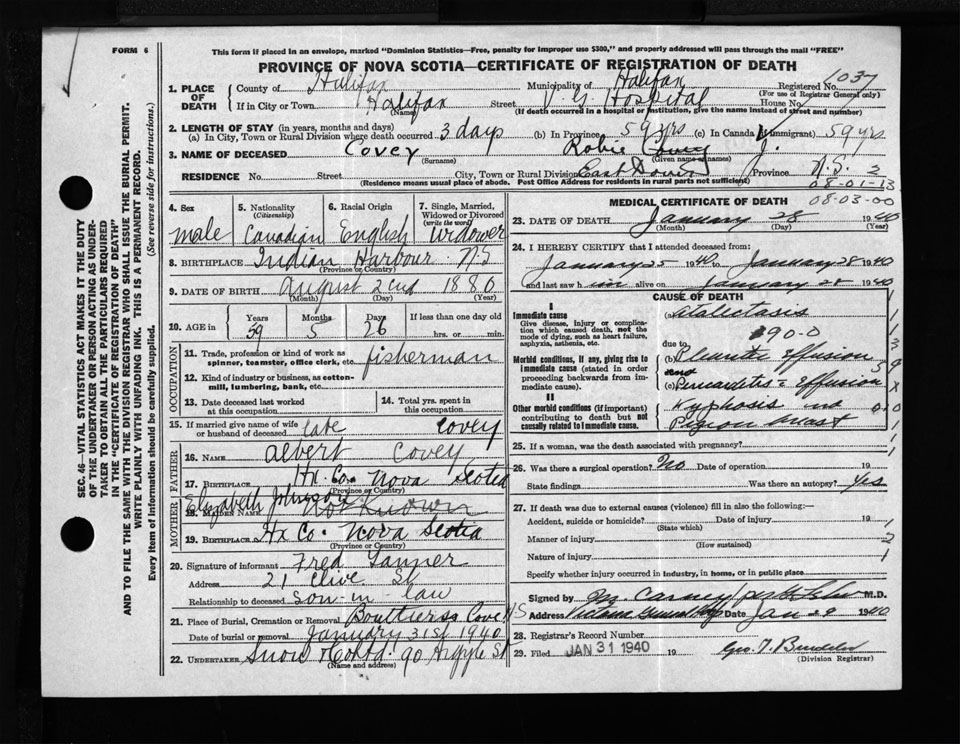 FORM 6
This form if placed in an envelope, marked "Dominion Statistics—Free, penalty for improper use $300," and properly addressed will pass through the mail "FREE"
PROVINCE OF NOVA SCOTIA—CERTIFICATE OF REGISTRATION OF DEATH
1. PLACE OF DEATH
County of Halifax Municipality of Halifax Registered No. 1037
(For use of Registrar General only)
If in City or Town Halifax Street V. G. Hospital House No.
(Name) (If death occurred in a hospital or institution, give the name instead of street and number)
2. LENGTH OF STAY (in years, months and days)
(a) In City, Town or Rural Division where death occurred 3 days (b) In Province 59 yrs (c) In Canada (if immigrant) 59 yrs
3. NAME OF DECEASED Covey Robie Covey J.
(Surname) (Given name or names)
RESIDENCE No. Street City, Town or Rural Division East Dover Province N.S. 2
(Residence means usual place of abode. Post Office Address for residents in rural parts not sufficient)
08-01-13
08-03-00
4. Sex male
5. Nationality (Citizenship) Canadian
6. Racial Origin English
7. Single, Married, Widowed or Divorced (write the word) Widower
8. BIRTHPLACE Indian Harbour N.S
(Province or Country)
9. DATE OF BIRTH August 2nd 1880
(Month) (Day) (Year)
10. AGE in Years Months Days If less than one day old
59 5 26 hrs. or min.
OCCUPATION
11. Trade, profession or kind of work as spinner, teamster, office clerk, etc. fisherman
12. Kind of industry or business, as cotton-mill, lumbering, bank, etc.
13. Date deceased last worked at this occupation
14. Total yrs. spent in this occupation
15. If married give name of wife or husband of deceased late Covey
FATHER
16. Name Albert Covey
17. Birthplace Hx. Co. Nova Scotia
(Province or Country)
MOTHER
Elizabeth Johnson
18. Maiden Name Not Known
19. Birthplace Hx Co. Nova Scotia
(Province or Country)
20. Signature of informant Fred Tanner
Address 21 Clive St
Relationship to deceased Son-in-law
21. Place of Burial, Cremation or Removal Boutliers Cove N.S
Date of burial or removal January 31st 1940
22. UNDERTAKER Snow & Co Ltd. 90 Argyle St
(Name and address)
MEDICAL CERTIFICATE OF DEATH
23. DATE OF DEATH January 28 1940
(Month) (Day) (Year)
24. I HEREBY CERTIFY that I attended deceased from:
January 25 1940 to January 28 1940
and last saw him alive on January 28 1940
CAUSE OF DEATH
I
Immediate cause
Give disease, injury or complication which caused death, not the mode of dying, such as heart failure, asphyxia, asthenia, etc.
(a) Atalectasis
190-0
due to
Morbid conditions, if any, giving rise to immediate cause (stated in order proceeding backwards from immediate cause).
(b) Pleuritis effusion
and
(c) Pericarditis c effusion
II
Other morbid conditions (important) contributing to death but not causally related to immediate cause.
Kyphosis and
Pigeon breast
25. If a woman, was the death associated with pregnancy?
26. Was there a surgical operation? No Date of operation 19
State findings Was there an autopsy? Yes
27. If death was due to external causes (violence) fill in also the following:—
Accident, suicide or homicide? Date of injury 19
(State which)
Manner of injury
(How sustained)
Nature of injury
Specify whether injury occurred in industry, in home, or in public place
Signed by M. Carney M.D.
Address Victoria General Hosp Date Jan 29 1940
28. Registrar's Record Number
29. Filed JAN 31 1940 19
(Division Registrar)
SEC. 46—VITAL STATISTICS ACT MAKES IT THE DUTY OF THE UNDERTAKER OR PERSON ACTING AS UNDERTAKER TO OBTAIN ALL THE PARTICULARS REQUIRED IN THE "CERTIFICATE OF REGISTRATION OF DEATH" AND TO FILE THE SAME WITH THE DIVISION REGISTRAR WHO SHALL ISSUE THE BURIAL PERMIT.
WRITE PLAINLY WITH UNFADING INK. THIS IS A PERMANENT RECORD.
Every item of information should be carefully supplied. (See reverse side for instructions.)